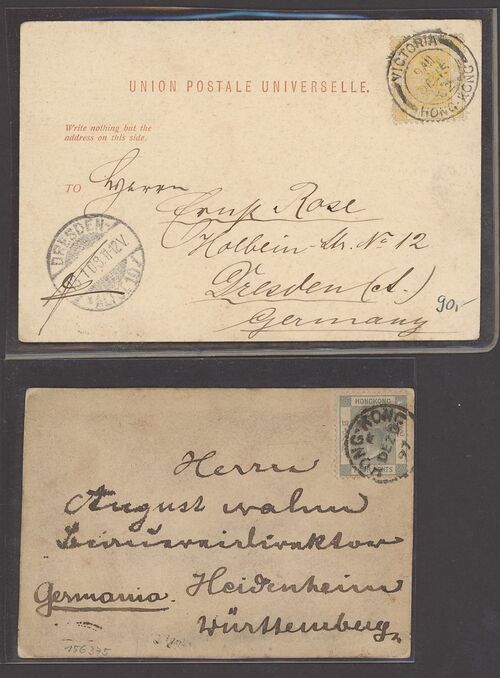 UNION POSTALE UNIVERSELLE.
VICTORIA
HONG-KONG
Write nothing but the
address on this side.
TO Herrn
Ernst Rose
Holbein-Str. No 12
Dresden (A.)
Germany
90,-
DRESDEN-
ALTST. 10
HONGKONG
CENTS
HONG-KONG
DE
97
Herrn
August
Heidenheim
Germania.
Württemberg
156375